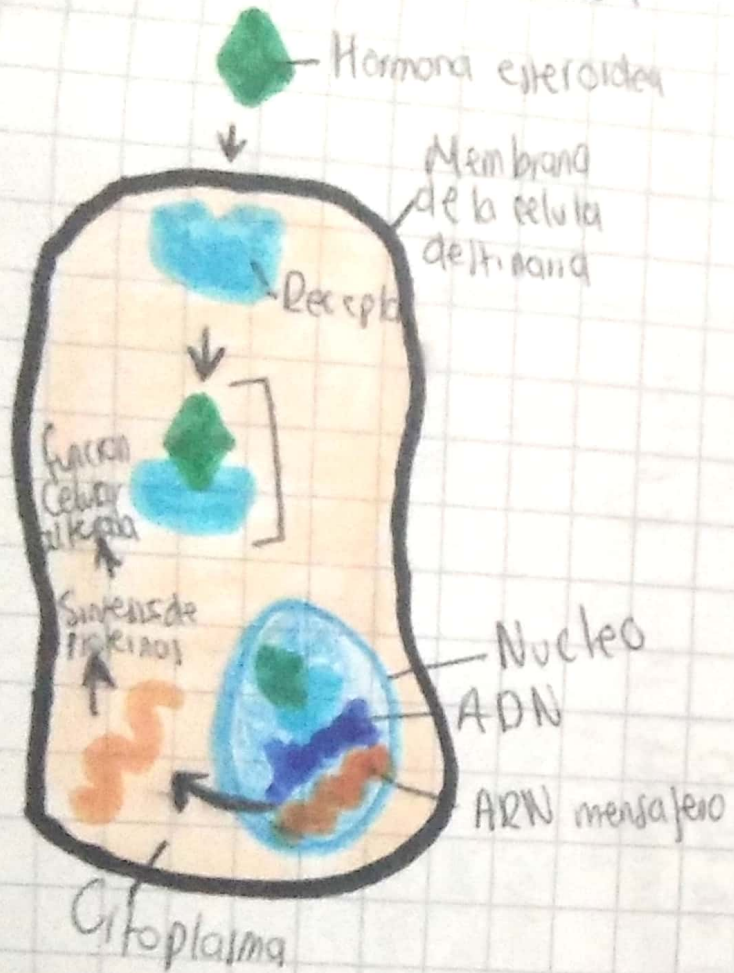 Hormona esteroidea
Membrana
de la celula
destinaria
Recepto
funcion
Celular
alterada
Sintesis de
proteinas
Nucleo
ADN
ARN mensajero
Citoplasma